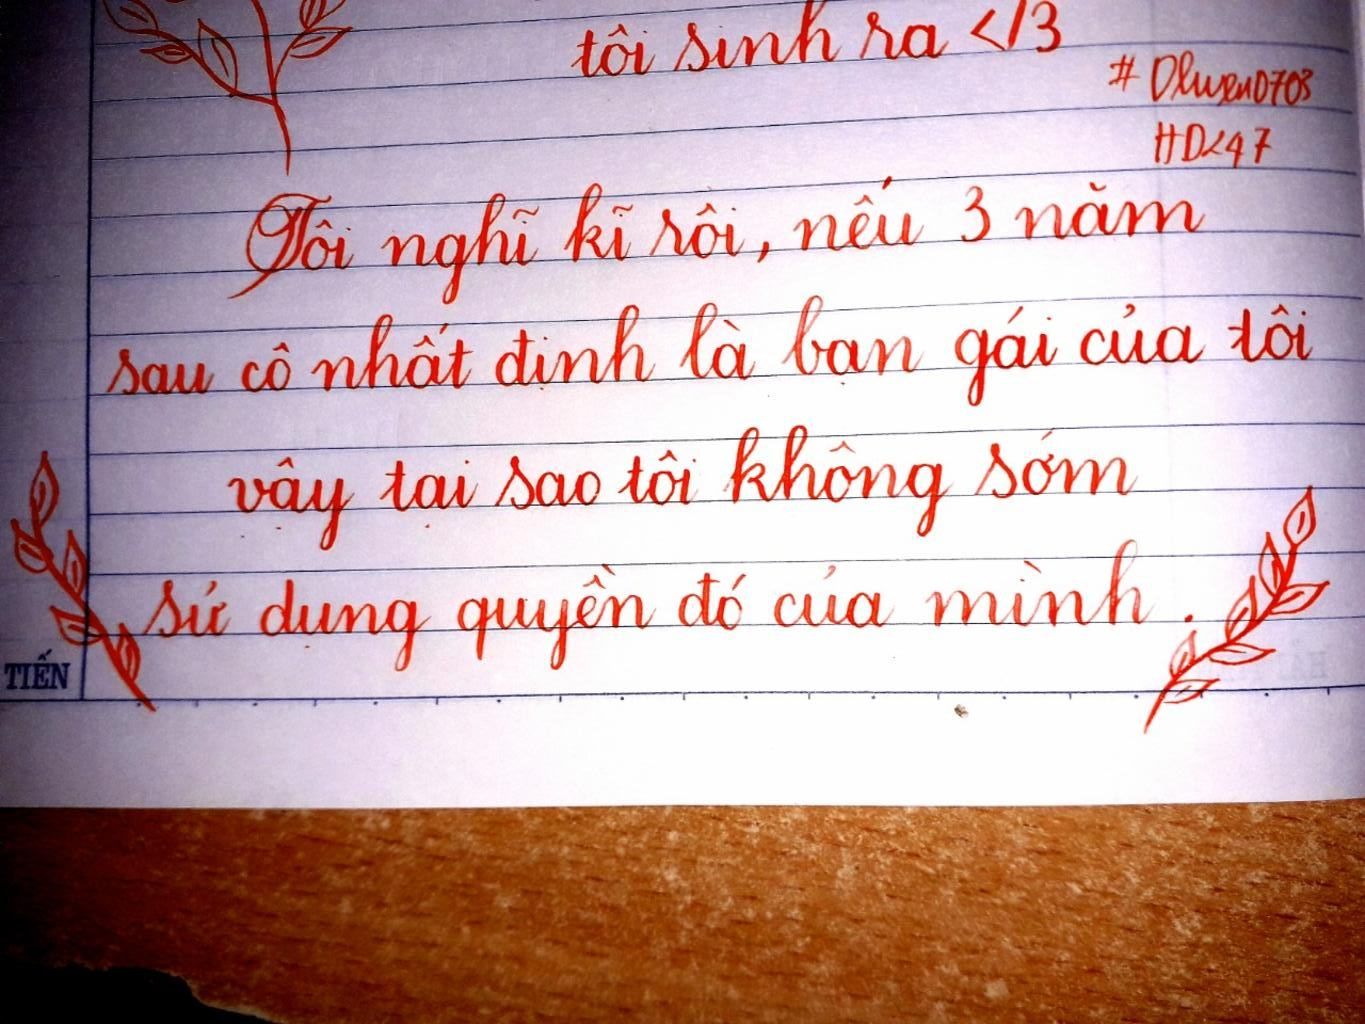 tôi sinh ra </3
# Dluyen0703
HD<47
Tôi nghĩ kĩ rồi, nếu 3 năm
sau cô nhất định là bạn gái của tôi
vậy tại sao tôi không sớm
sử dụng quyền đó của mình.
TIẾN